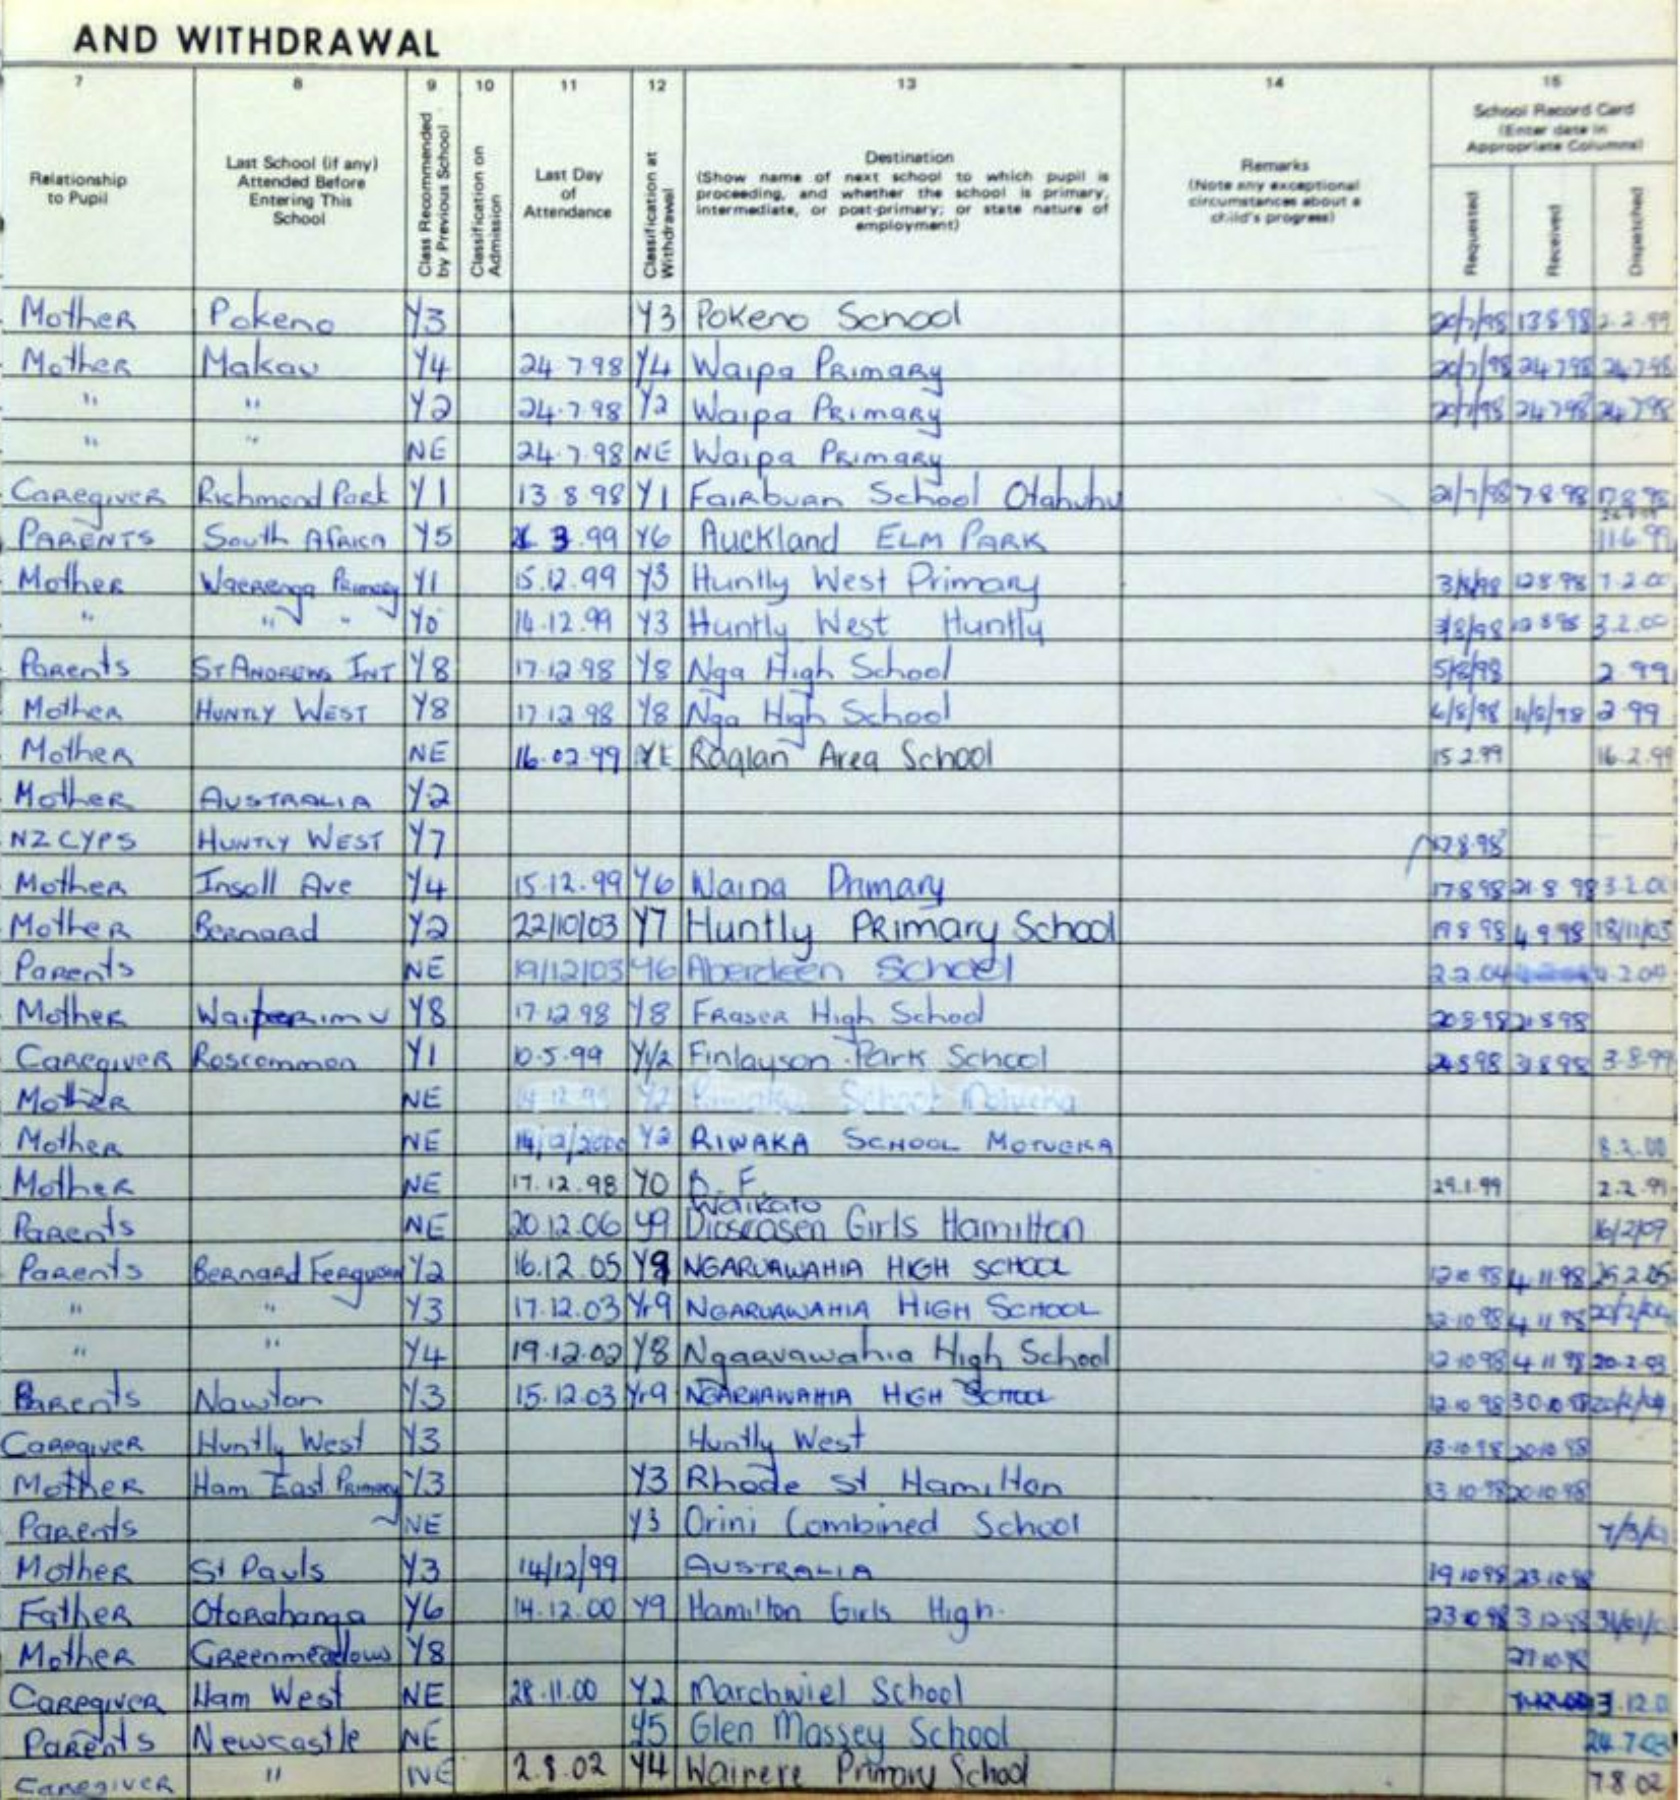 AND WITHDRAWAL
7 8 9 10 11 12 13 14 15
Relationship to Pupil
Last School (if any) Attended Before Entering This School
Class Recommended by Previous School
Classification on Admission
Last Day of Attendance
Classification at Withdrawal
Destination
(Show name of next school to which pupil is proceeding, and whether the school is primary, intermediate, or post-primary; or state nature of employment)
Remarks
(Note any exceptional circumstances about a child's progress)
School Record Card
(Enter date in Appropriate Columns)
Requested Received Dispatched
Mother Pokeno Y3 Y3 Pokeno School 20/7/98 13 8 98 2.2.99
Mother Makau Y4 24.7.98 Y4 Waipa Primary 20/7/98 24 7 98 24.7.98
" " Y2 24.7.98 Y2 Waipa Primary 20/7/98 24 7 98 24.7.98
" " NE 24.7.98 NE Waipa Primary
Caregiver Richmond Park Y1 13.8.98 Y1 Fairburn School Otahuhu 21/7/98 7 8 98
PARENTS South Africa Y5 3.99 Y6 Auckland ELM PARK 11.6.99
Mother Waerenga Primary Y1 15.12.99 Y3 Huntly West Primary 3/8/98 12 8 98 7.2.00
" " " Y0 14.12.99 Y3 Huntly West Huntly 3/8/98 12 8 98 3.2.00
Parents ST ANDREWS INT Y8 17.12.98 Y8 Nga High School 5/8/98 2 99
Mother HUNTLY WEST Y8 17 12 98 Y8 Nga High School 6/8/98 11/8/98 2 99
Mother NE 16.02.99 Raglan Area School 15 2.99 16.2.99
Mother AUSTRALIA Y2
NZ CYPS HUNTLY WEST Y7 17 8.98
Mother Insoll Ave Y4 15.12.99 Y6 Primary 17 8 98 21 8 98 3.2.00
Mother Bernard Y2 22/10/03 Y7 Huntly PRimary School 19 8 98 4 9 98 18/11/03
Parents NE 19/12/03 Y6 Aberdeen School 2 2.04 2.04
Mother Y8 17.12.98 Y8 Fraser High School 20 8 98 21 8 98
Caregiver Roscommon Y1 10.5.99 Y1/2 Finlayson Park School 24 8 98 31 8 98 3.8.99
Mother NE 14.12.99 Y2 School Motueka
Mother NE 14/12/2000 Y2 RIWAKA SCHOOL MOTUEKA 8.2.00
Mother NE 17.12.98 Y0 B. F. 29.1.99 2.2.99
Waikato
Parents NE 20.12.06 Y9 Diocesasen Girls Hamilton 16/2/07
Parents Bernard Ferguson Y2 16.12.05 Y9 NGARUAWAHIA HIGH SCHOOL 12 10 98 4 11 98
" " Y3 17.12.03 Yr9 NGARUAWAHIA HIGH SCHOOL 12.10 98 4 11 98
" " Y4 19.12.02 Y8 Ngaruawahia High School 12 10 98 4 11 98 20.2.03
Parents Nawton Y3 15.12.03 Yr9 NGARUAWAHIA HIGH SCHOOL 12 10 98 30 10 98
Caregiver Huntly West Y3 Huntly West 13.10.98 20 10 98
Mother Ham East Primary Y3 Y3 Rhode St Hamilton 13 10 98 20 10 98
Parents NE Y3 Orini Combined School
Mother St Pauls Y3 14/12/99 AUSTRALIA 19 10 98 23 10 98
Father Otorohanga Y6 14.12.00 Y9 Hamilton Girls High. 23 10 98 3 12 98
Mother Greenmeadows Y8 27 10 98
Caregiver Ham West NE 28.11.00 Y2 Marchwiel School
Parents Newcastle NE Y5 Glen Massey School
Caregiver " NE 2.8.02 Y4 Wairere Primary School 7 8 02